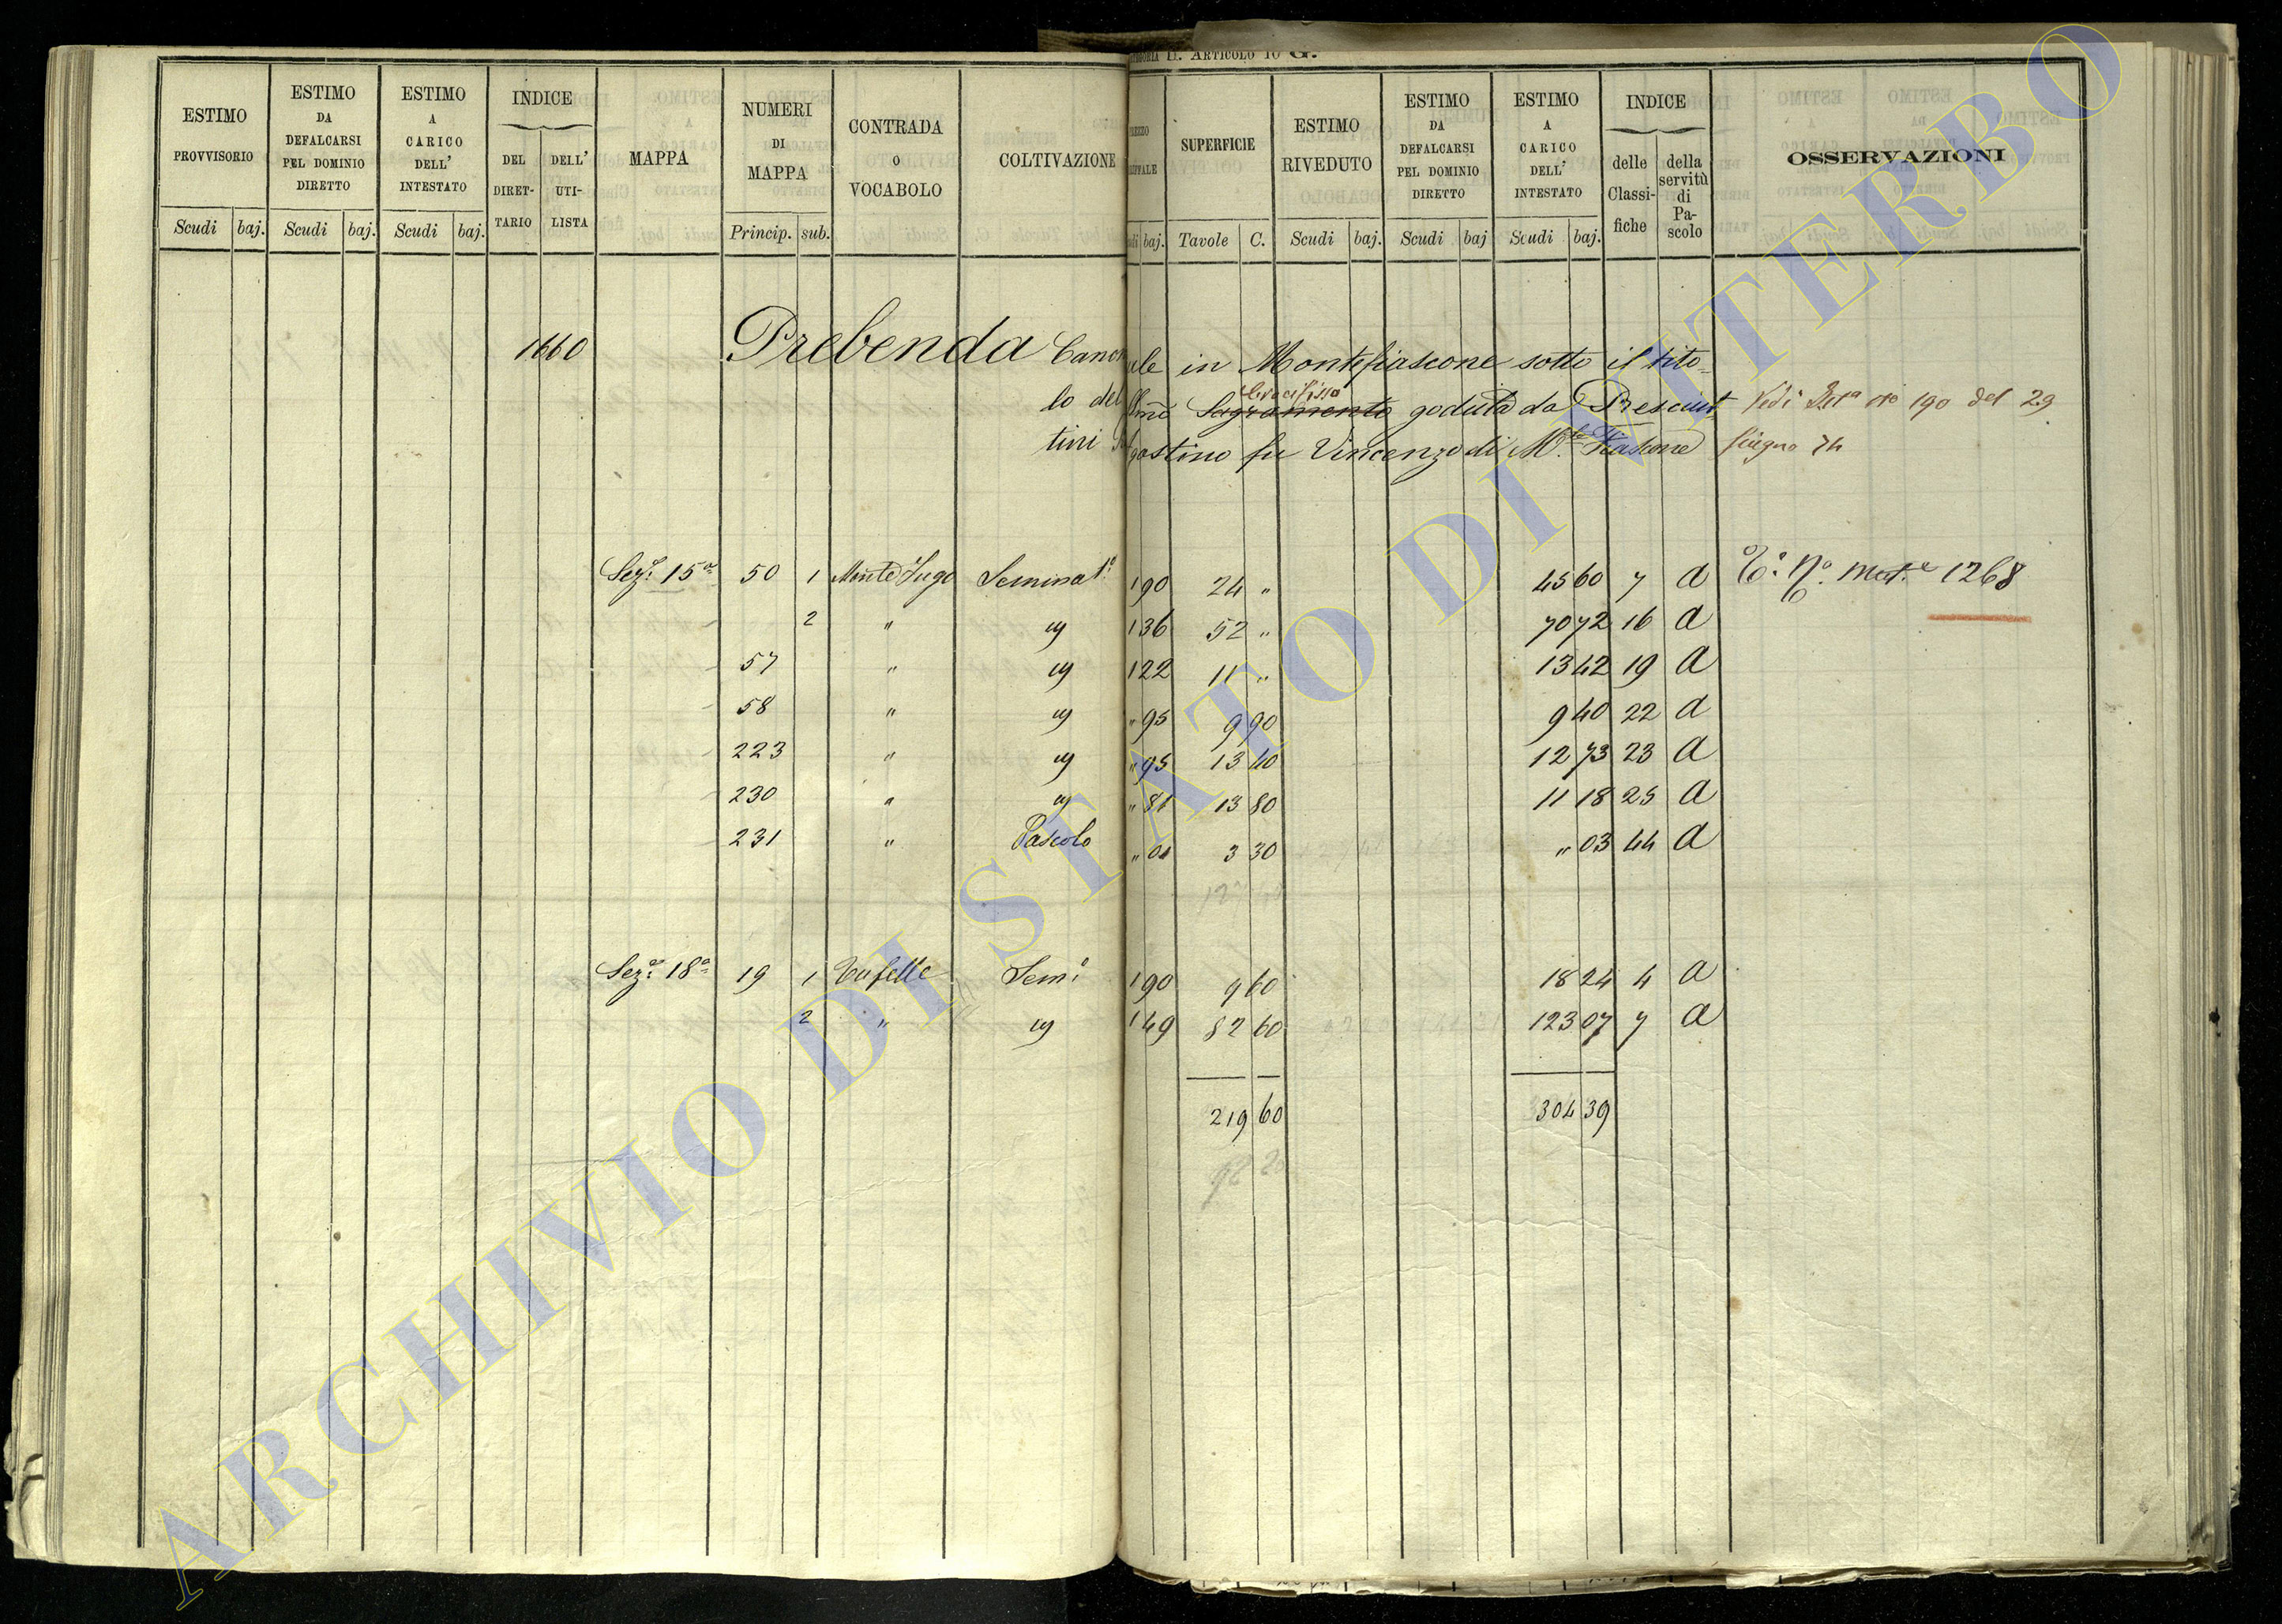 ESTIMO PROVVISORIO Scudi baj.
ESTIMO DA DEFALCARSI PEL DOMINIO DIRETTO Scudi baj.
ESTIMO A CARICO DELL' INTESTATO Scudi baj.
INDICE DEL DIRET-TARIO DELL' UTI-LISTA
MAPPA
NUMERI DI MAPPA Princip. sub.
CONTRADA O VOCABOLO
COLTIVAZIONE
ARTICOLO 10 G.
baj.
SUPERFICIE Tavole C.
ESTIMO RIVEDUTO Scudi baj.
ESTIMO DA DEFALCARSI PEL DOMINIO DIRETTO Scudi baj
ESTIMO A CARICO DELL' INTESTATO Scudi baj.
INDICE delle Classi-fiche della servitù di Pa-scolo
OSSERVAZIONI
1660 Prebenda Canon ale in Montefiascone sotto il tito=
Crocifisso
lo del Sagramento goduta da Presciut Vedi no 190 del 29
tini Agostino fu Vincenzo di M.te Fiascone Giugno 74
Sez.e 15a 50 1 Monte Lugo Seminat.o 1 90 24 " 45 60 7 a No. Mat.e 1268
2 " " 1 36 52 " 70 72 16 a
57 " " 1 22 11 " 13 42 19 a
58 " " " 95 9 90 9 40 22 a
223 " " " 95 13 40 12 73 23 a
230 " " " 81 13 80 11 18 25 a
231 " Pascolo " 01 3 30 " 03 44 a
Sez.e 18a 19 1 Tufelle Sem.o 1 90 9 60 18 24 4 a
2 " " 1 49 82 60 123 07 7 a
219 60 304 39
92 20
ARCHIVIO DI STATO DI VITERBO